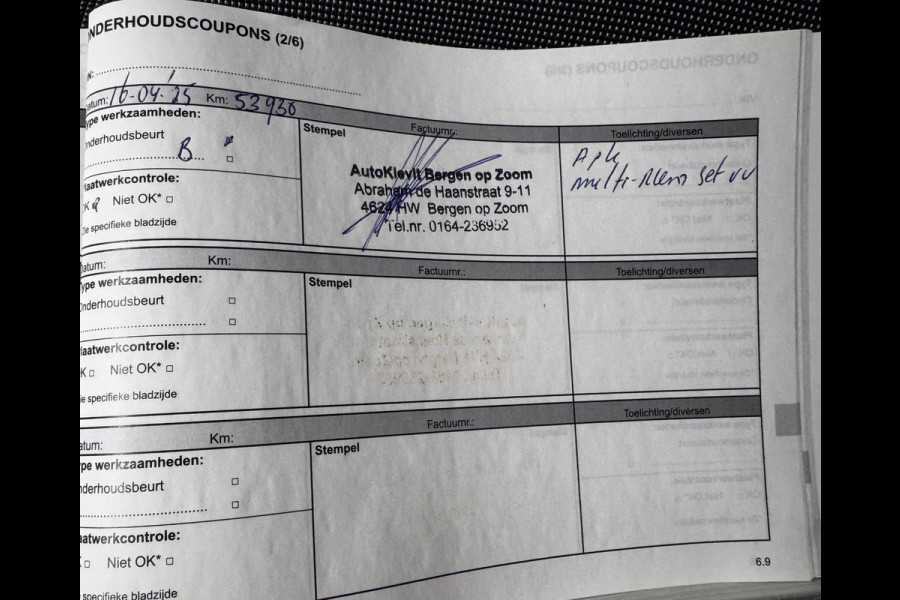 NDERHOUDSCOUPONS (2/6)
N:
atum: 16-04-'25 Km: 53930
ype werkzaamheden:
Stempel
Factuurnr.:
Toelichting/diversen
nderhoudsbeurt
B
AutoKievit Bergen op Zoom
Abraham de Haanstraat 9-11
4624 HW Bergen op Zoom
Tel.nr. 0164-236952
Apk
multi-riem set vv
laatwerkcontrole:
K Niet OK*
ie specifieke bladzijde
atum: Km: Factuurnr.: Toelichting/diversen
ype werkzaamheden:
Stempel
nderhoudsbeurt
laatwerkcontrole:
K Niet OK*
ie specifieke bladzijde
atum: Km: Factuurnr.: Toelichting/diversen
pe werkzaamheden:
Stempel
nderhoudsbeurt
aatwerkcontrole:
Niet OK*
specifieke bladzijde
6.9